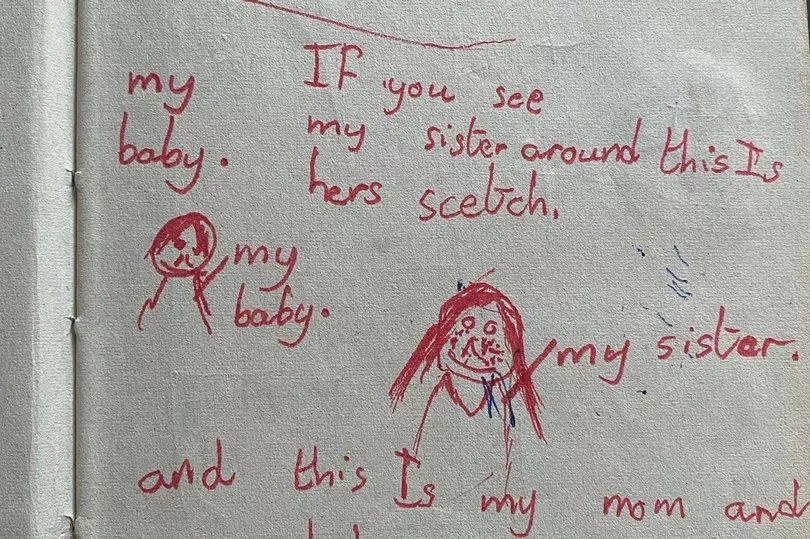 my
baby.
If you see
my sister around this Is
hers scetch.
my
baby.
my sister.
and this Is my mom and